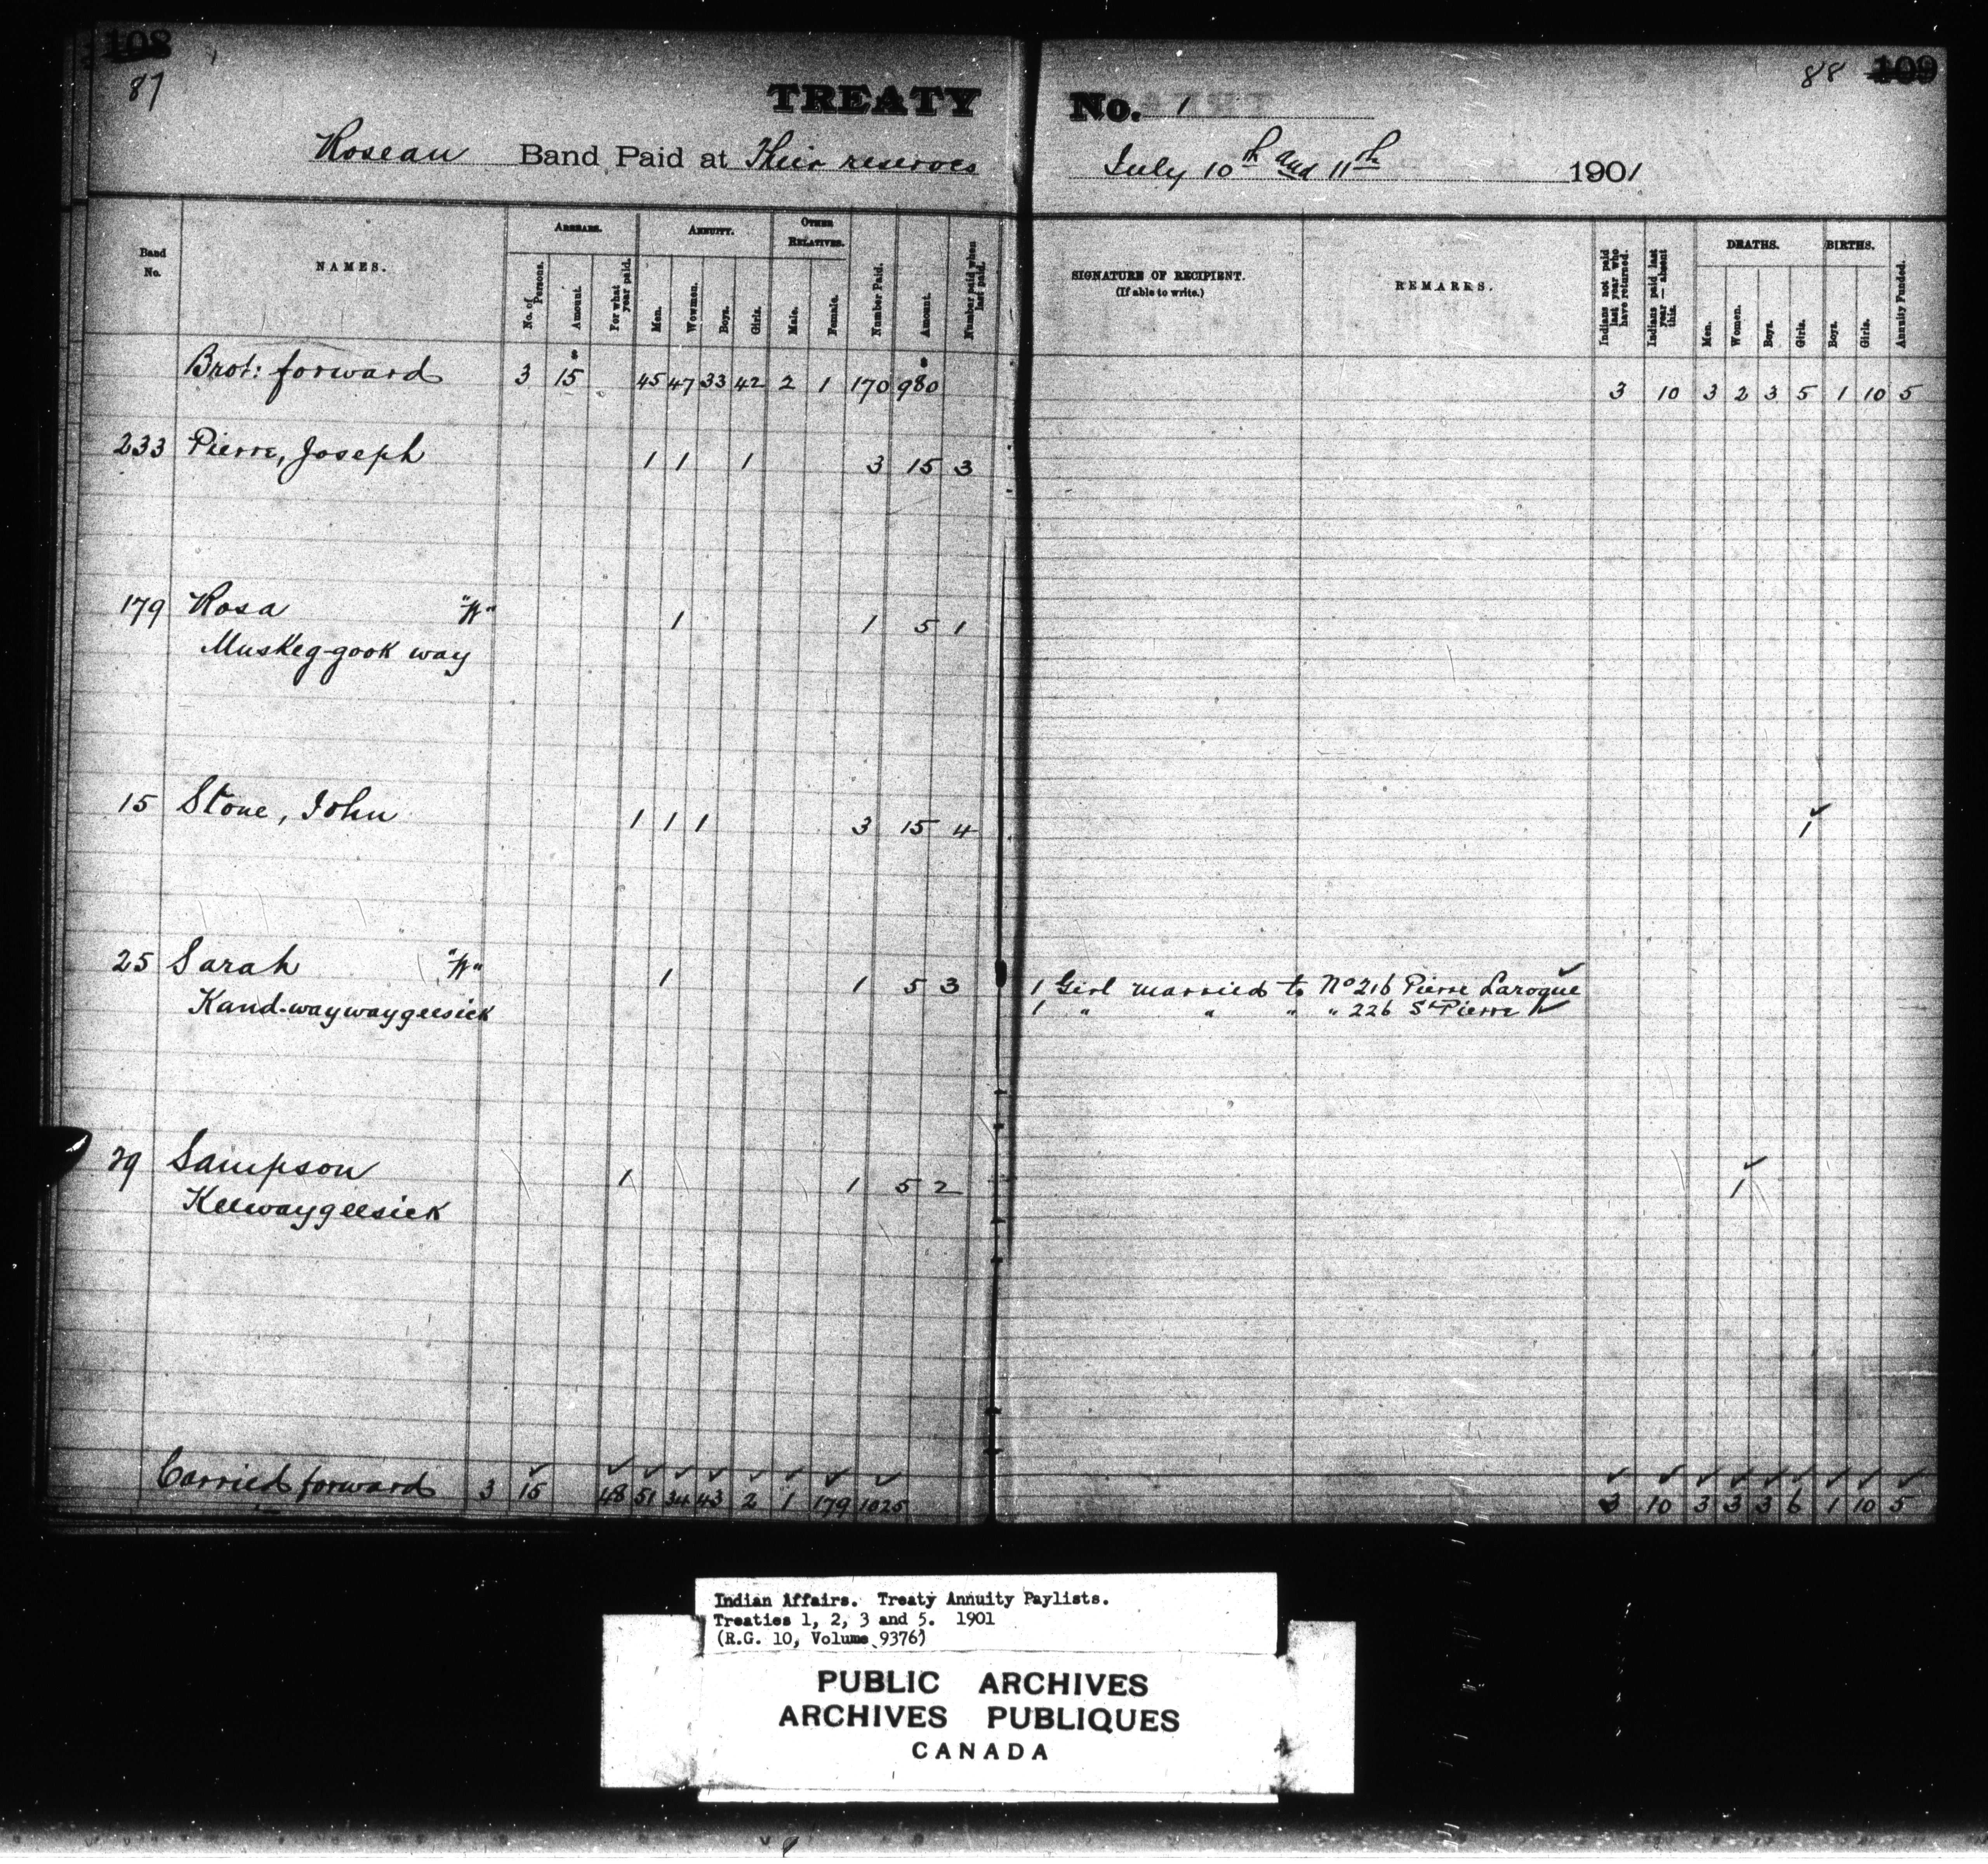 108
87
TREATY No. 1
88 109
Roseau Band Paid at Their reserves July 10th and 11th 1901
Band No.
NAMES.
ARREARS.
No. of Persons.
Amount.
For what year paid.
ANNUITY.
Men.
Wowmen.
Boys.
Girls.
OTHER RELATIVES.
Male.
Female.
Number Paid.
Amount.
Number paid when last paid.
SIGNATURE OF RECIPIENT.
(If able to write.)
REMARKS.
Indians not paid last year who have returned.
Indians paid last year — absent this.
DEATHS.
Men.
Women.
Boys.
Girls.
BIRTHS.
Boys.
Girls.
Annuity Funded.
Brot: forward 3 15 45 47 33 42 2 1 170 980 3 10 3 2 3 5 1 10 5
233 Pierre, Joseph 1 1 1 3 15 3
179 Rosa "W" 1 1 5 1
Muskeg-gook way
15 Stone, John 1 1 1 3 15 4 1
25 Sarah "W" 1 1 5 3 1 Girl married to No 216 Pierre Laroque
Kand-waywaygeesick 1 " " " " 226 St Pierre
29 Sampson 1 1 5 2 1
Keewaygeesick
Carried forward 3 15 48 51 34 43 2 1 179 1025 3 10 3 3 3 6 1 10 5
Indian Affairs. Treaty Annuity Paylists.
Treaties 1, 2, 3 and 5. 1901
(R.G. 10, Volume 9376)
PUBLIC ARCHIVES
ARCHIVES PUBLIQUES
CANADA